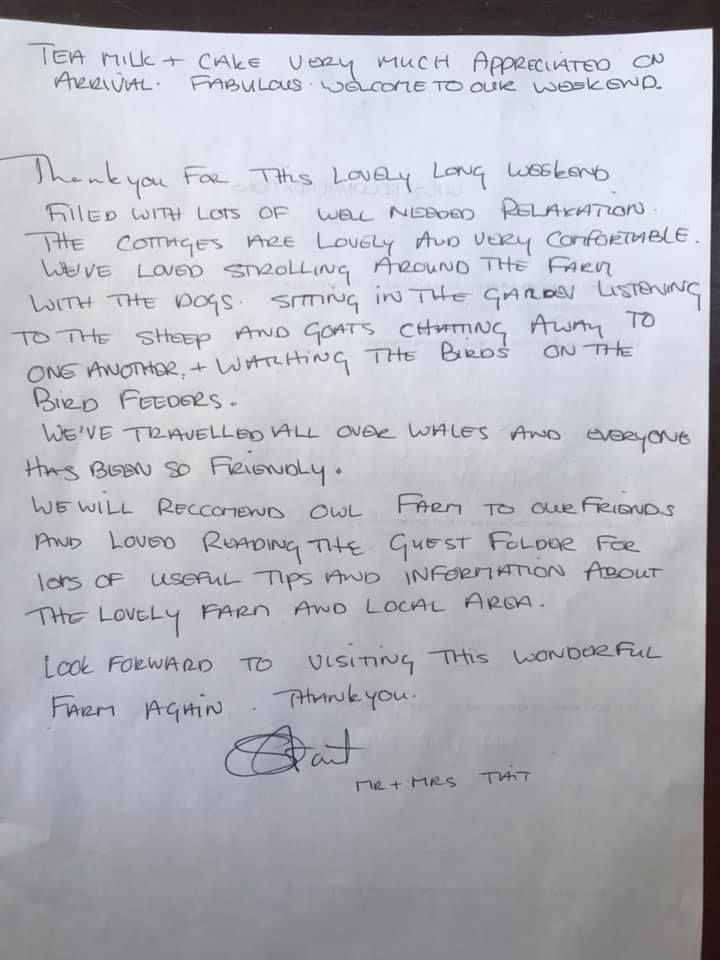 TEA MILK + CAKE VERY MUCH APPRECIATED ON
ARRIVAL. FABULOUS. WELCOME TO OUR WEEKEND.
Thank you FOR THIS LOVELY LONG WEEKEND
FILLED WITH LOTS OF WELL NEEDED RELAXATION.
THE COTTAGES ARE LOVELY AND VERY COMFORTABLE.
WE'VE LOVED STROLLING AROUND THE FARM
WITH THE DOGS. SITTING IN THE GARDEN LISTENING
TO THE SHEEP AND GOATS CHATTING AWAY TO
ONE ANOTHER, + WATCHING THE BIRDS ON THE
BIRD FEEDERS.
WE'VE TRAVELLED ALL OVER WALES AND EVERYONE
HAS BEEN SO FRIENDLY.
WE WILL RECCOMEND OWL FARM TO OUR FRIENDS
AND LOVED READING THE GUEST FOLDER FOR
lots OF USEFUL TIPS AND INFORMATION ABOUT
THE LOVELY FARM AND LOCAL AREA.
LOOK FORWARD TO VISITING THIS WONDERFUL
FARM AGAIN. THANK YOU.
STait
MR + MRS TAIT